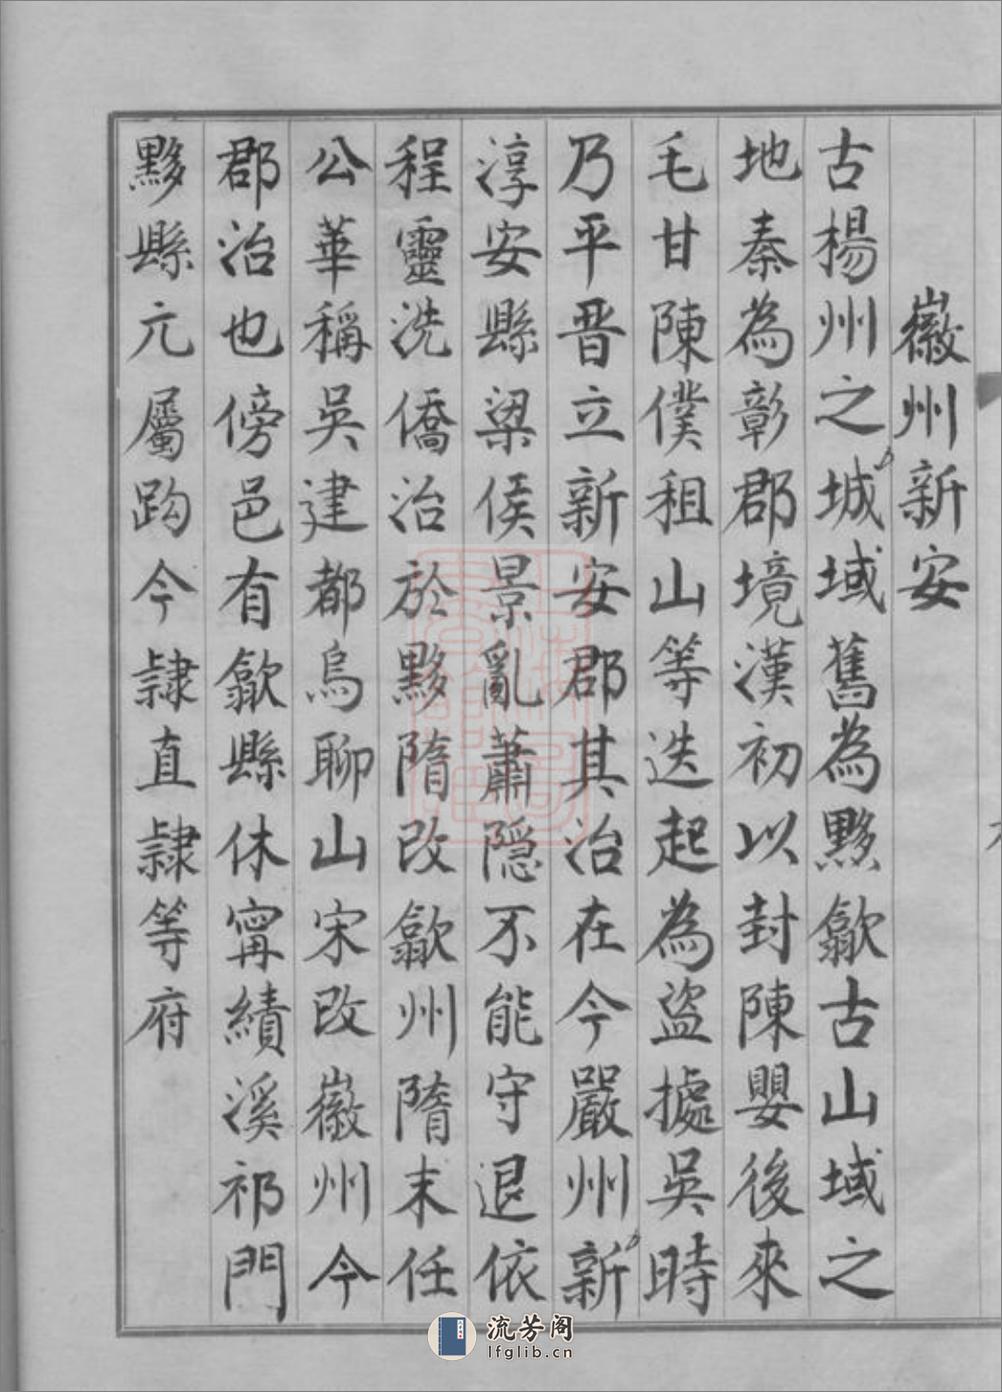 徽州新安
古楊州之城域舊為黟歙古山域之
地秦為彰郡境漢初以封陳嬰後來
毛甘陳僕租山等迭起為盜據吳時
乃平晋立新安郡其治在今嚴州新
淳安縣梁侯景亂蕭隱不能守退依
程靈洗僑治於黟隋改歙州隋末任
公華稱吳建都烏聊山宋改徽州今
郡治也傍邑有歙縣休寗績溪祁門
黟縣元屬趵今隸直隸等府
流芳阁
lfglib.cn